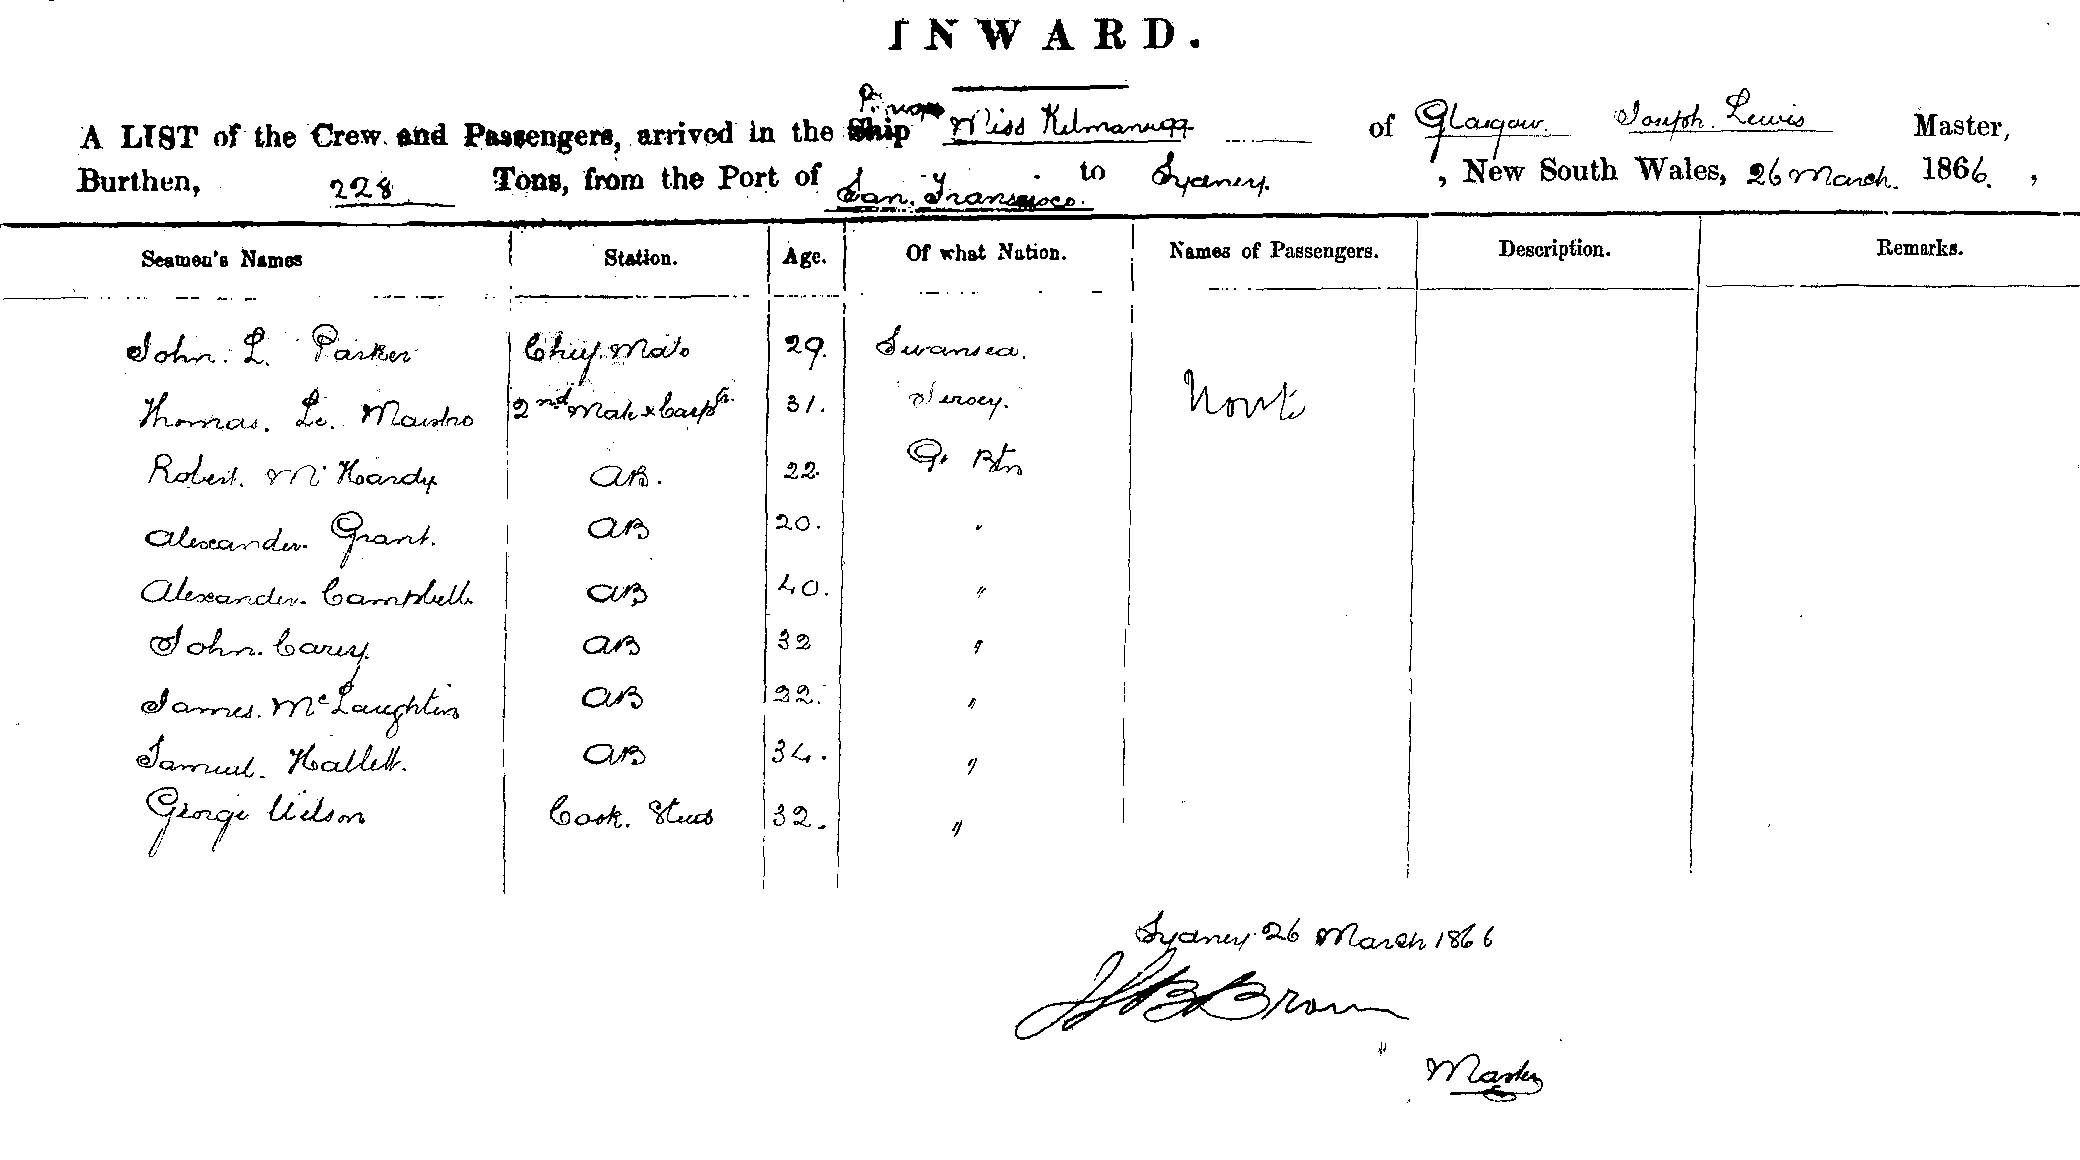 INWARD.
A LIST of the Crew and Passengers, arrived in the Ship Miss Kilmansegg of Glasgow. Joseph. Lewis Master,
Burthen, 228 Tons, from the Port of San. Fransisco. to Sydney. , New South Wales, 26 March. 1866. ,
Seamen's Names Station. Age. Of what Nation. Names of Passengers. Description. Remarks.
John. L. Parker Chief. Mate 29. Swansea.
Thomas. Le. Maistre 2nd Mate & Carptr. 31. Jersey. None
Robert. Mc Hardy AB. 22. Gt Btn
Alexander. Grant. AB 20. "
Alexander. Campbell. AB 40. "
John. Carey. AB 32 "
James. McLaughlin AB 22. "
Samuel. Hallett. AB 34. "
George Wilson Cook. Stewd 32. "
Sydney 26 March 1866
Brown
Master